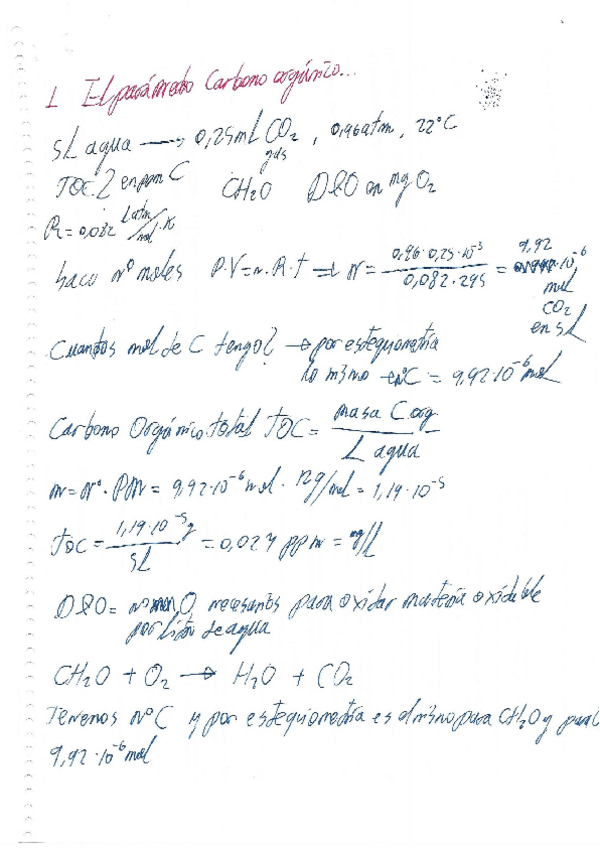 1. El parámetro Carbono orgánico...
5L agua → 0,25mL CO2 gas, 0,96 atm, 22°C
TOC? en ppm C CH2O DQO en mg O2
R = 0,082 L atm/mol·K
Saco nº moles P·V=n·R·t ⇒ n = 0,96·0,25·10^-3 / 0,082·295 = 9,92·10^-6 mol CO2 en 5L
Cuantos mol de C tengo? → por estequiometría
lo mismo nºC = 9,92·10^-6 mol
Carbono Orgánico total TOC = masa C org / L agua
m = nº·PM = 9,92·10^-6 mol · 12g/mol = 1,19·10^-5
TOC = 1,19·10^-5 g / 5L = 0,024 ppm = mg/L
DQO = O2 necesarios para oxidar materia oxidable
por litro de agua
CH2O + O2 → H2O + CO2
Tenemos nºC y por estequiometría es el mismo para CH2O y para
9,92·10^-6 mol